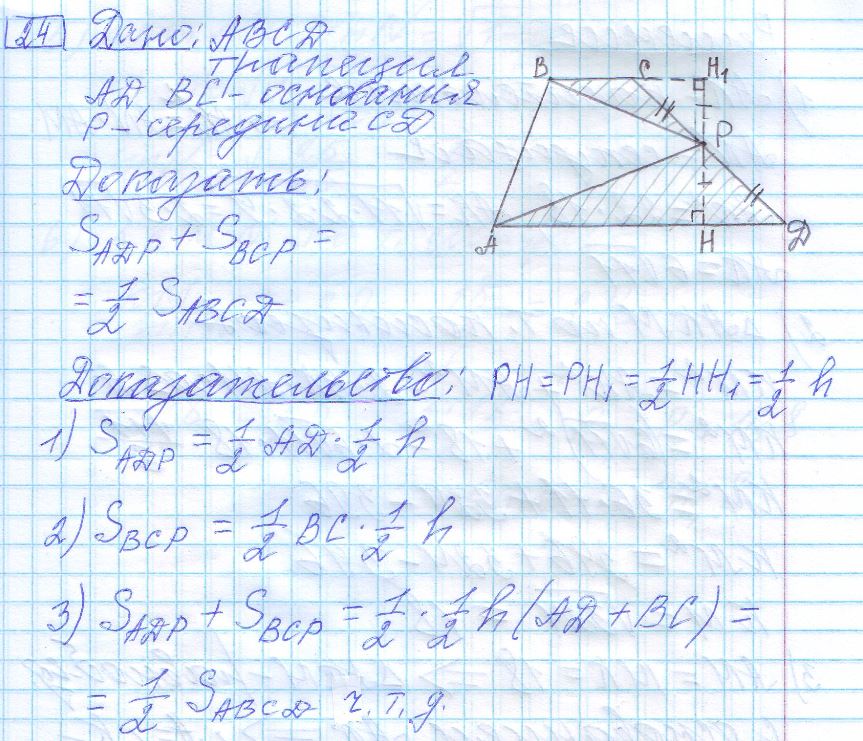 24 Дано: ABCD
трапеция
AD, BC - основания
P - середина CD
Доказать:
S_ADP + S_BCP =
= 1/2 S_ABCD
B C H₁
P
A H D
Доказательство: PH = PH₁ = 1/2 HH₁ = 1/2 h
1) S_ADP = 1/2 AD · 1/2 h
2) S_BCP = 1/2 BC · 1/2 h
3) S_ADP + S_BCP = 1/2 · 1/2 h (AD + BC) =
= 1/2 S_ABCD ч.т.д.